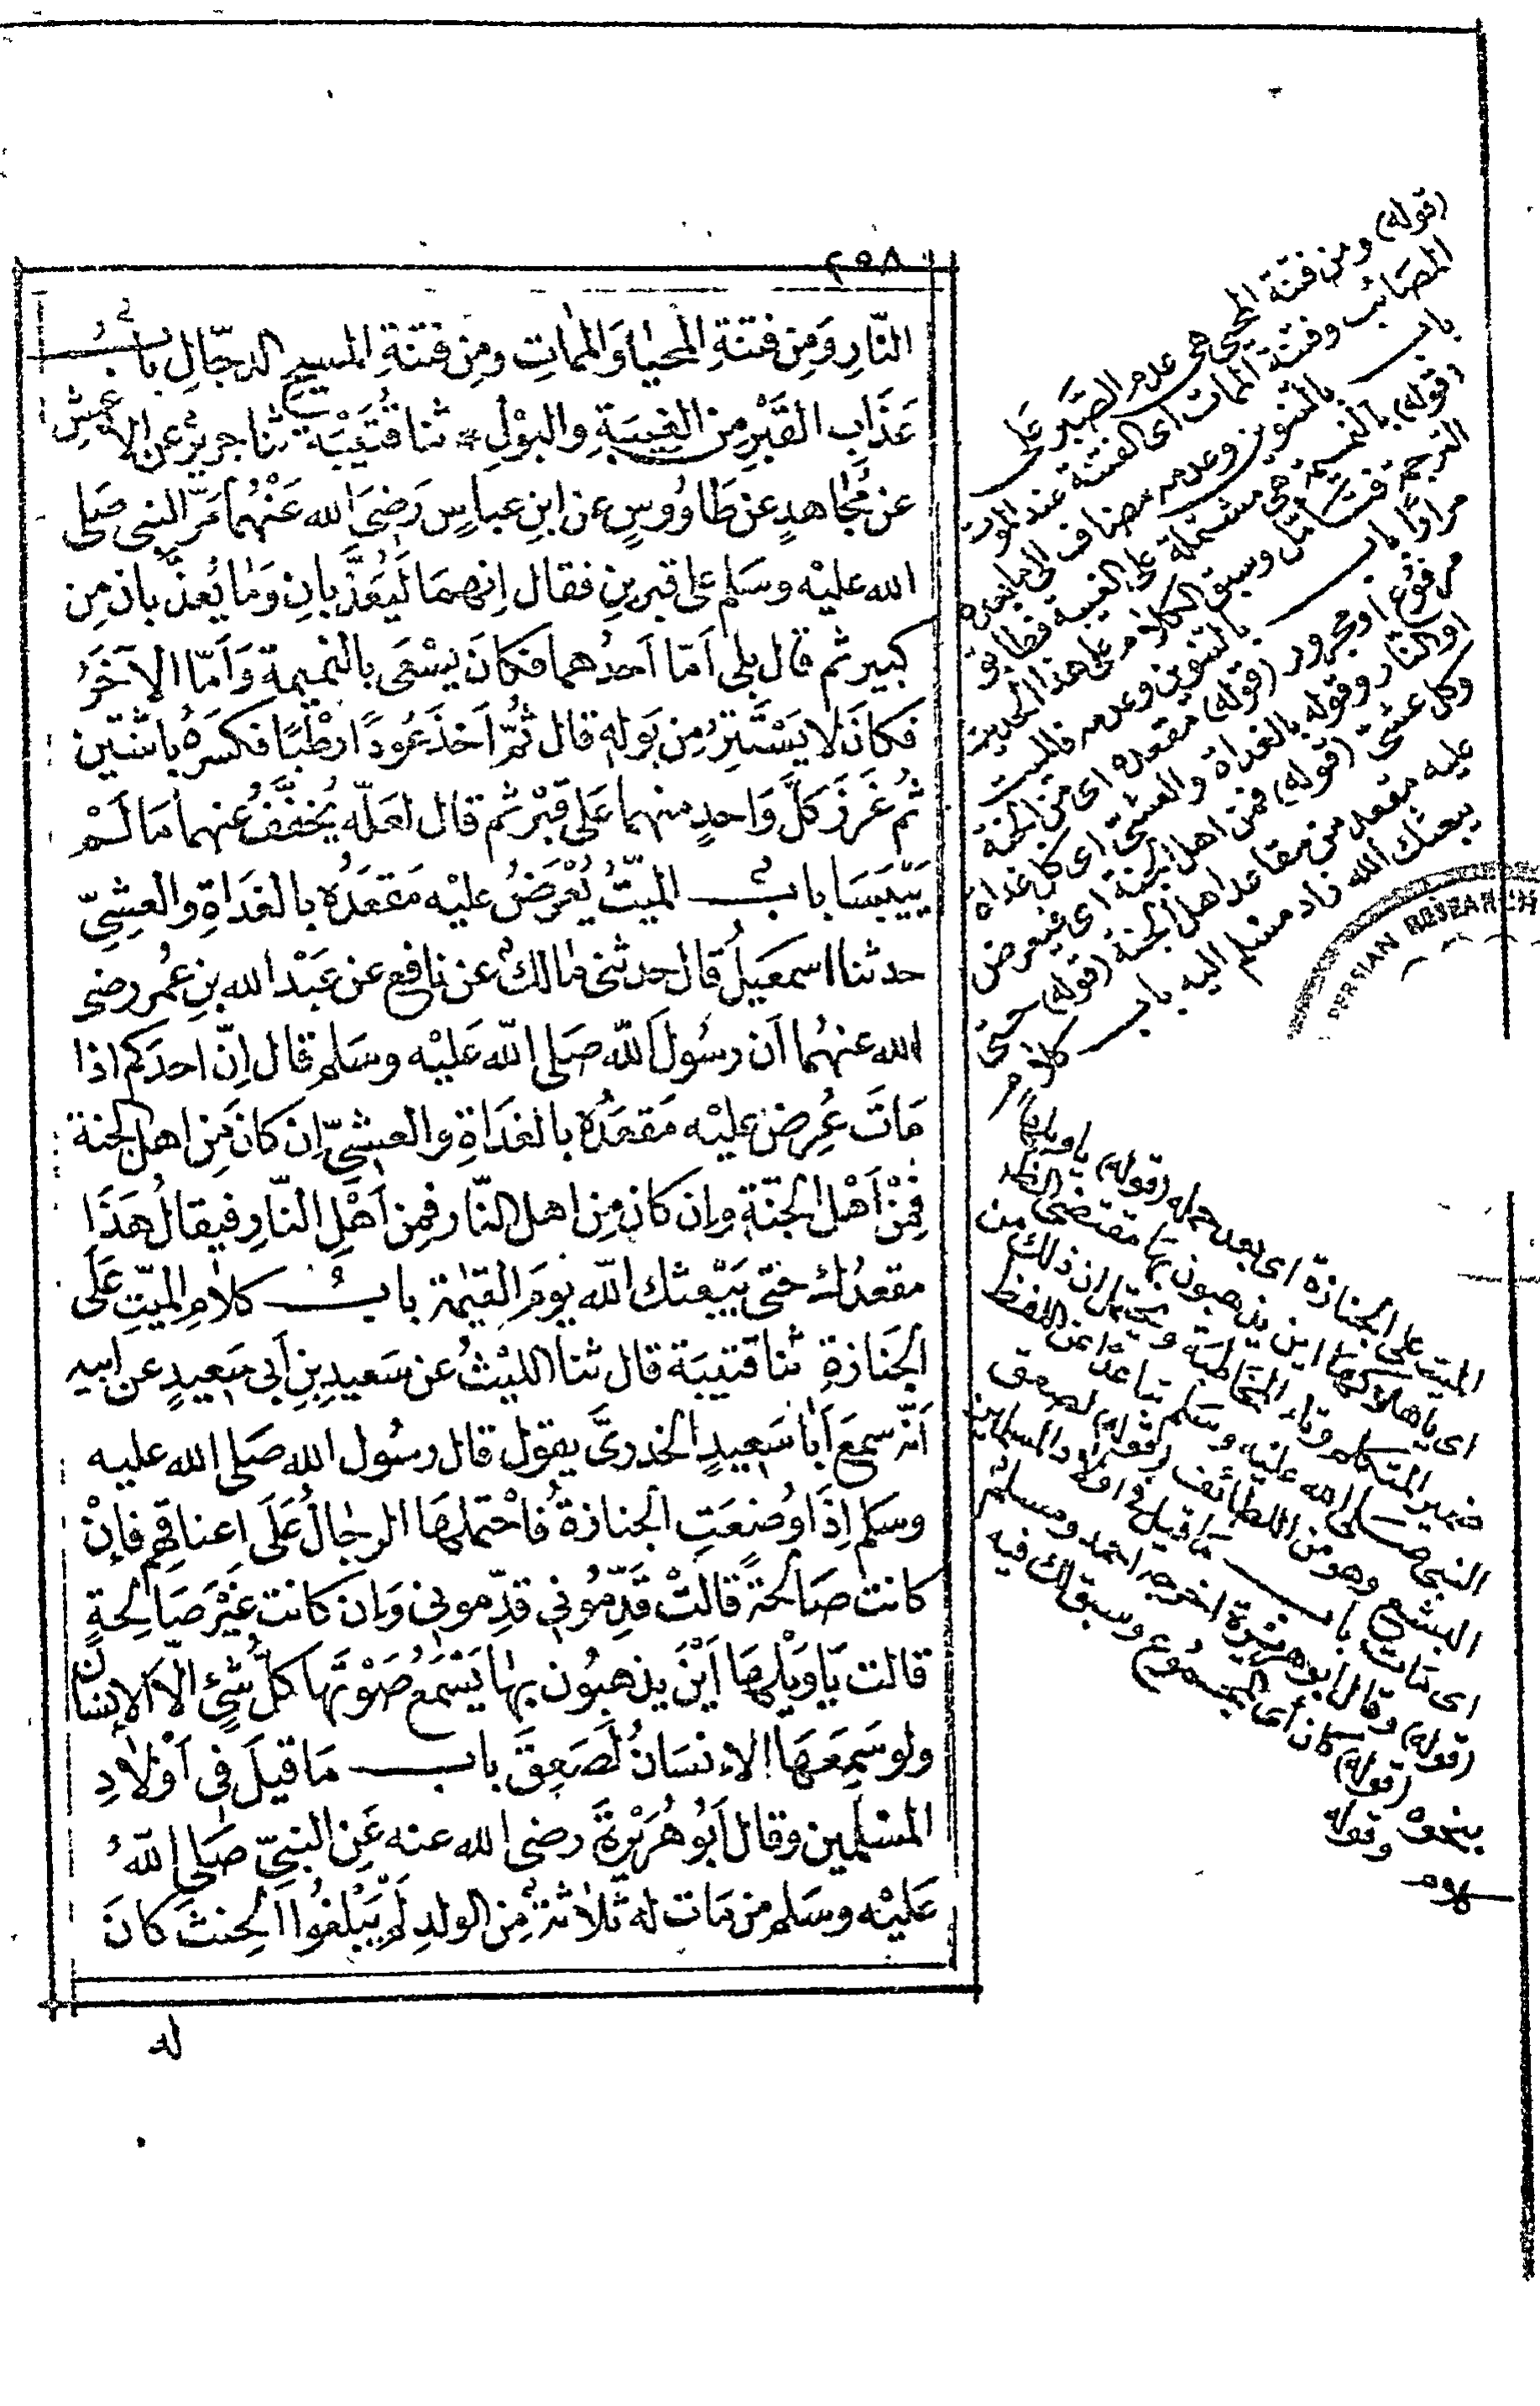 ٢٥٨
النّارِ وَمِن فتنةِ المحيا وَالمماتِ ومِن فتنةِ المسيح الدجّالِ بابُ
عَذَابِ القَبْرِ مِن الغِيبَةِ والبَوْلِ ثنا قُتَيْبَة ثنا جريرٌ عن الاعمشِ
عن مُجاهدٍ عن طَاوُوسٍ عن ابنِ عباسٍ رَضِيَ الله عَنْهُما مَرَّ النبي صَلى
الله عليْه وسَلم على قبرينِ فقال اِنهمَا لَيُعَذَّبانِ وَمَا يُعذَّبان مِن
كبير ثم قال بلى اَمّا اَحدُهما فكانَ يسْعَى بالنميمةِ وَاَمّا الآخَرُ
فكانَ لا يَسْتَتِرُ مِن بَولهِ قال ثُمّ اَخذَ عُودًا رطْبًا فكسَرهُ باثنتين
ثُم غَرَزَ كلَّ وَاحدٍ منهما عَلى قَبْرٍ ثم قال لعَلّه يُخفَّفُ عنهما مَا لَمْ
يَيْبَسَا بابٌ الميّتُ يُعْرَضُ عليْه مَقعَدُه بالغَدَاةِ والعشِيِّ
حدثنا اسمعيلُ قال حدثني مالكٌ عن نافعٍ عن عَبْد الله بنِ عُمر رضي
الله عنهُما اَن رسُولَ اللّه صَلى اللّه عَليْه وسَلم قال اِنّ احدَكم اذا
مَاتَ عُرِضَ عليْه مَقعَدُه بالغَدَاةِ والعشِيِّ اِن كانَ مِن اهل الجنة
فمِنْ اَهْل الجنّةِ وان كان مِن اهل النّار فمِن اَهْلِ النّارِ فيقالُ هَذَا
مقعدُك حَتى يَبْعثكَ اللّه يومَ القيٰمة بابُ كلامِ الميّتِ عَلَى
الجَنازةِ ثنا قتيبَة قال ثنا الليْثُ عن سَعيدِ بنِ اَبي سَعيدٍ عن ابيه
اَنّه سمعَ اَبَا سَعِيدٍ الخدريَّ يقول قال رسُول الله صَلى الله عليه
وسَلم اِذَا وُضعَتِ الجنازةُ فاحْتملهَا الرجالُ عَلَى اعناقِهم فاِنْ
كانت صَالحةً قالَتْ قَدِّمُوني قدِّموني وَان كانت غَيْرَ صَالِحةٍ
قالت يَا وَيْلهَا اَيْنَ يذهبُون بها يَسْمَعُ صَوْتَها كلُّ شَيْءٍ اِلّا الانسَان
ولو سَمِعَهَا الانسَانُ لَصَعِقَ باب مَا قيلَ في اَوْلَادِ
المسْلمين وقال اَبُو هُرَيْرةَ رضي الله عنه عَنِ النبِيّ صَلى اللّهُ
عَليْه وسَلم من مَات له ثلاثةٌ مِن الولدِ لَم يَبْلغُوا الحِنثَ كانَ
له
(قوله) ومن فتنة المحيى هي عدم الصَّبر عَلى
المصَائب وفتنة الممات اي الفتنة عند الموت
باب بالتنوين وعدمه مضاف الى ما بعده
(قوله) بالنميمة هي مشتملة على الغيبة فطابق
الترجمة فتامّل وسبق الكلام على هذا الحديث
مرارًا باب بالتنوين وعدمه فالميت
مرفوع او مجرور (قوله) مقعده اي من الجنة
او النار وقوله بالغداة والعشي اي كل غداة
وكل عشي (قوله) فمن اهل الجنة اي فيعرض
عليه مقعد من مقاعد اهل الجنة (قوله) حتى
يبعثك الله زاد مسلم اليه باب كلام
الميت على الجنازة اي بعد حمله (قوله) يا ويلها
اي يا هلاكها اين يذهبون بها مقتضى الظاهر
ضمير المتكلم ويحتمل ان ذلك من
النبي صلى الله عليه وسلم تباعدًا عن اللفظ
البشع وهو من اللطائف (قوله) لصعق
اي مات باب مَا قيل في اولاد المسلمين
(قوله) وقال ابو هريرة اخرجه احمد ومسلم
بنحوه (قوله) كان اي المسموع وسبق لك فيه
وقوله
PERSIAN RESEARCH